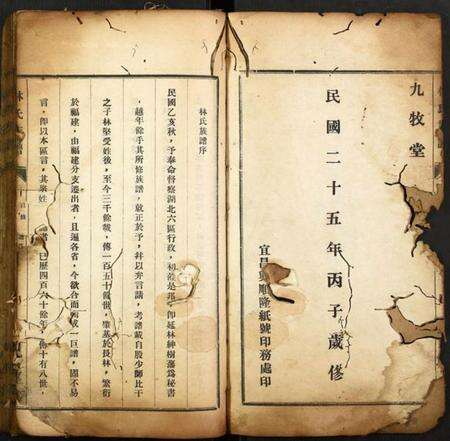 九牧堂
民國二十五年丙子歲修
宜昌興順隆紙號印務處印
林氏族譜序
民國乙亥秋，予奉命督察湖北六區行政，初蒞是邦，即延林紳樹藩為秘書
，越年餘手其所修族譜，就正於予，幷以弁言請，考譜載自殷少師比干
之子林堅受姓後，至今三千餘載，傳一百五十餘世，肇基於長林，繁衍
於福建，由福建分支遷出者，且遍各省，今欲合而成一巨譜，固不易
言，即以本區言，其來姓 者，已歷四百六十餘年，傳十有八世，
林氏